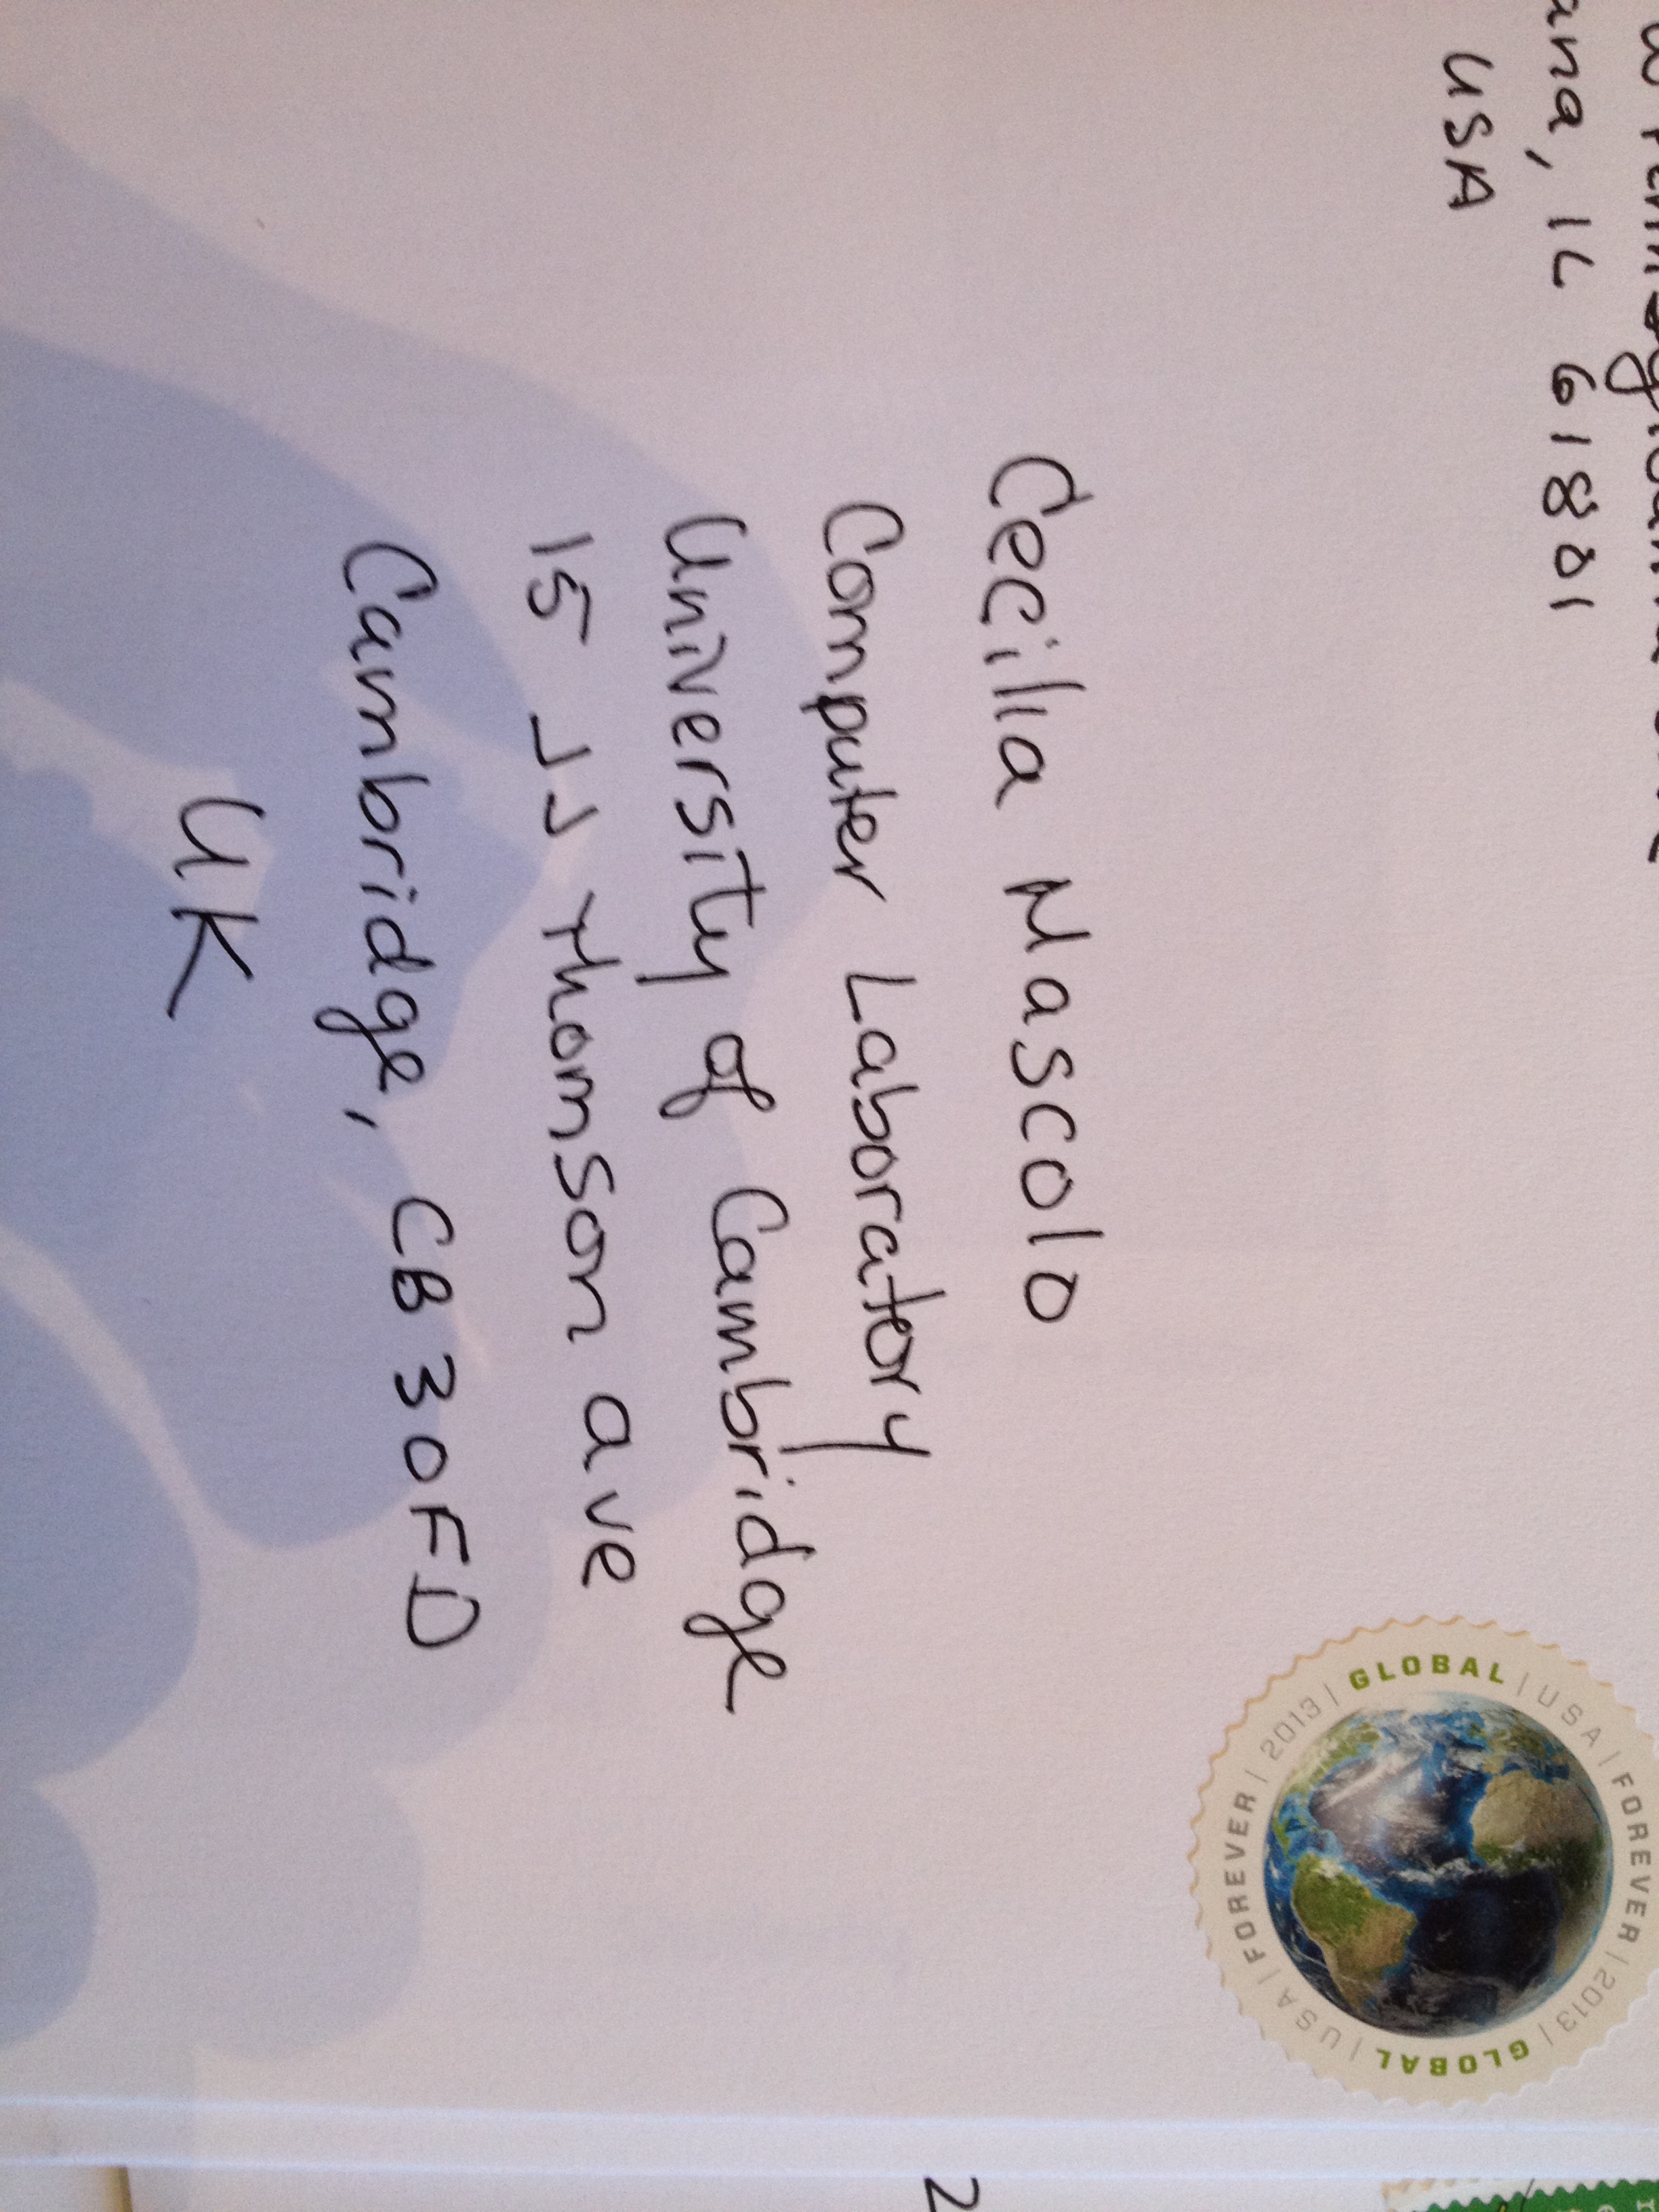 USA
IL 61801
Cecilia Mascolo
Computer Laboratory
University of Cambridge
15 JJ Thomson ave
Cambridge, CB3 0FD
UK
GLOBAL | USA | FOREVER | 2013 | GLOBAL | USA | FOREVER | 2013 |
2